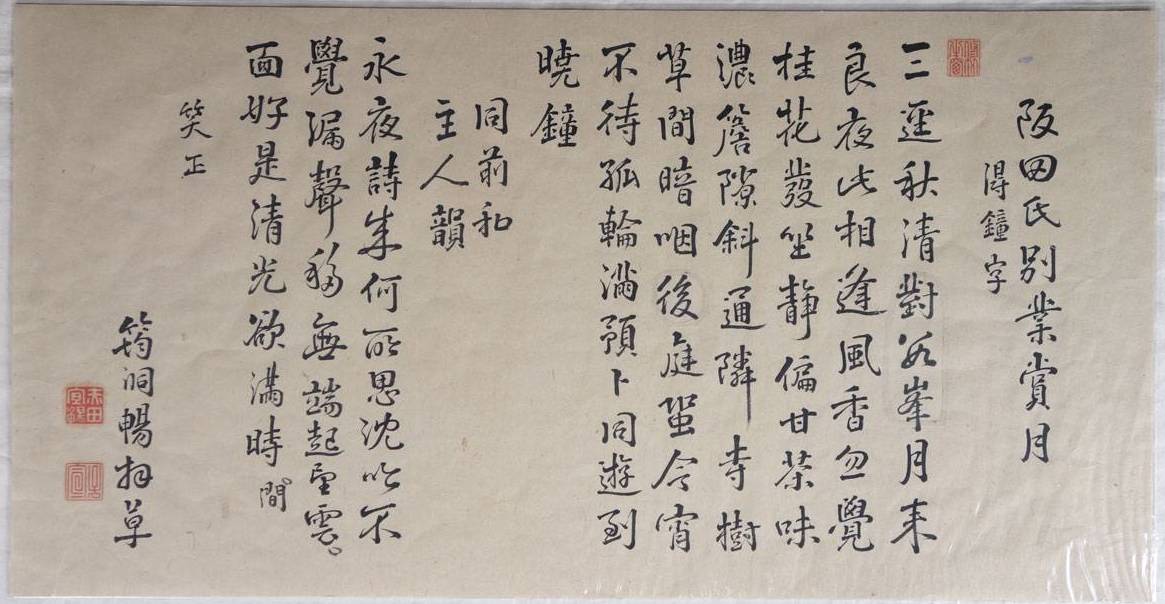 阪田氏別業賞月
得鐘字
三逕秋清對数峯月来
良夜此相逢風香忽覺
桂花發坐静偏甘茶味
濃簷隙斜通隣寺樹
草間暗咽後庭蛩今宵
不待孤輪滿預卜同遊到
曉鐘
同前和
主人韻
永夜詩成何所思沈吟不
覺漏聲移無端起望雲
面好是清光欲滿時間
笑正
筠洞暢拜草